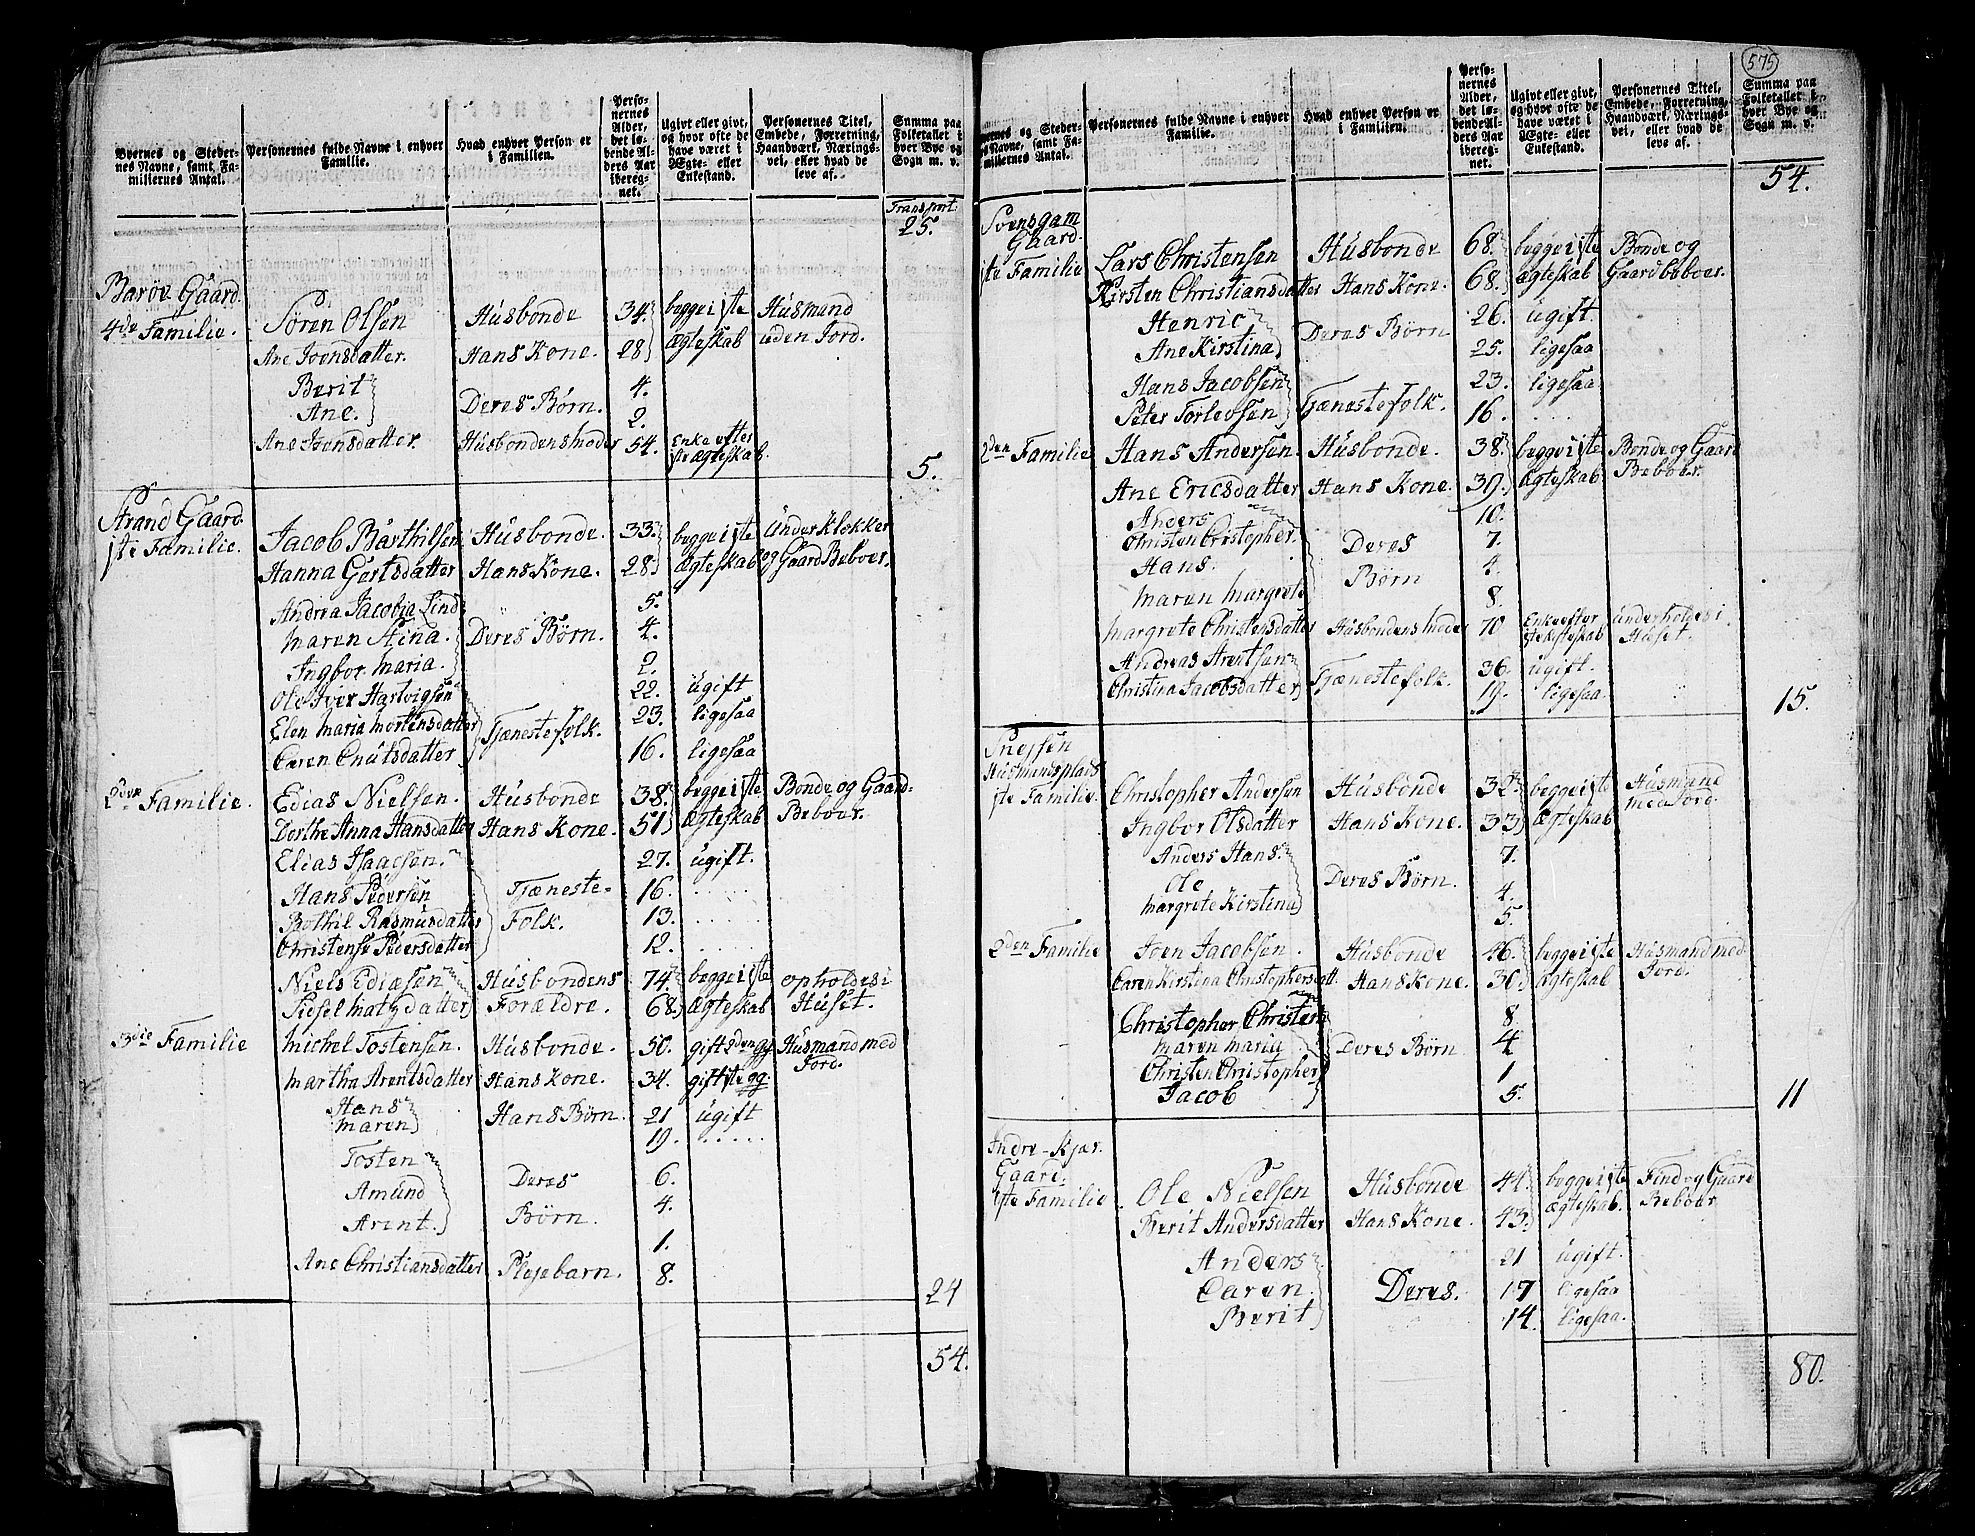 Byernes og Steder-
nes Navne, samt Fa-
miliernes Antal.
Personernes fulde Navne i enhver
Familie.
Hvad enhver Person er
i Familien.
Perso-
nernes
Alder,
det lø-
bende Al-
ders Aar
iberegnet.
Ugivt eller givt,
og hvor ofte de
have været i
Ægte- eller
Enkestand.
Personernes Titel,
Embede, Forretning,
Haandværk, Nærings-
vei, eller hvad de
leve af.
Summa paa
Folketallet i
hver Bye og
Sogn m. v.
Transport:
25.
Barøe Gaard.
4de Familie. Søren Olsen Husbonde 34. begge i 1ste Husmand
Ane Joensdatter. Hans Kone. 28 Ægteskab uden Jord.
Berit 4.
Ane. Deres Børn. 2.
Ane Joensdatter. Husbondens moder 54. Enke efter
1te Ægteskab.
5.
Strand Gaard
1te Familie. Jacob Barthilsen Husbonde. 33. begge i 1ste Under Klokker
Hanna Gertsdatter Hans Kone. 28. Ægteskab og Gaard Beboer.
Andrea Jacobia Lind 5.
Maren Stina. Deres Børn. 4.
Ingbor Maria. 2.
Ole Iver Hartvigsen 22. ugift
Elen Maria Mortensdatter Tjenestefolk. 23. ligesaa
Caren Cnutsdatter 16. ligesaa
2den Familie. Edias Nielsen. Husbonde 38. begge i 1ste Bonde og Gaard-
Dorthe Anna Hansdatter Hans Kone. 51 Ægteskab Beboer.
Elias Isaacsen. 27. ugift.
Hans Pedersen Tjæneste- 16. .....
Bothil Rasmusdatter Folk. 13. .....
Christense Pedersdatter 12. .....
Niels Ediasen Husbondens 74. begge i 1ste opholdes i
Sisel Matzdatter Forældre. 68. Ægteskab Huset.
3die Familie Michel Tostensen. Husbonde. 50. gift 2den gg Husmand med
Martha Arentsdatter Hans Kone. 34. gift 1te gg. Jord.
Hans Hans Børn. 21 ugift
Maren 19. .....
Tosten Deres 6.
Amund Børn. 4.
Arent. 1.
Ane Christiansdatter Plejebarn. 8.
24
54.
575
Steder-
Navne, samt Fa-
miliernes Antal.
Personernes fulde Navne i enhver
Familie.
Hvad enhver Person er
i Familien.
Perso-
nernes
Alder,
det lø-
bende Al-
ders Aar
iberegnet.
Ugivt eller givt,
og hvor ofte de
have været i
Ægte- eller
Enkestand.
Personernes Titel,
Embede, Forretning,
Haandværk, Nærings-
vei, eller hvad de
leve af.
Summa paa
Folketallet i
hver Bye og
Sogn m. v.
54.
Svensgam
Gaard.
1te Familie Lars Christensen Husbonde 68. begge i 1ste Bonde og
Kirsten Christiansdatter Hans Kone. 68. Ægteskab Gaardbeboer.
Henric Deres Børn 26. ugift
Ane Kirstina 25. ligesaa
Hans Jacobsen Tjænestefolk. 23. ligesaa
Peter Torlevsen 16. ....
2den Familie Hans Andersen Husbonde. 38. begge i 1ste Bonde og Gaard
Ane Ericsdatter Hans Kone. 39. Ægteskab Beboer.
Anders 10.
Christen Cristopher. Deres 7.
Hans. Børn 4.
Maren Margrete 8.
Margrete Christensdatter Husbondens moder 70 Enke efter Underholdes i
1te Ægteskab Huset.
Andreas Arentsen Tjænestefolk. 36. ugift.
Christina Jacobsdatter 19. ligesaa
15.
Husmandsplads
1te Familie. Christopher Andersen Husbonde 32. begge i 1ste Husmand
Ingbor Olsdatter Hans Kone. 33 Ægteskab med Jord.
Anders Hans. 7.
Ole Deres Børn. 4.
Margrete Kirstina 5.
2den Familie Joen Jacobsen. Husbonde 46. begge i 1ste Husmand med
Caren Kirstina Christophersdatt. Hans Kone. 36 Ægteskab Jord.
Christopher Christian 8
Maren Maria Deres Børn 4
Christen Christopher 1
Jacob 5.
11
Indre-Kjær.
Gaard.
1te Familie Ole Nielsen Husbonde 44. begge i 1ste Find og Gaard
Berit Andersdatter Hans Kone. 43. Ægteskab. Beboer.
Anders 21 ugift.
Caren Deres. 17 ligesaa
Berit 14. ligesaa.
80.